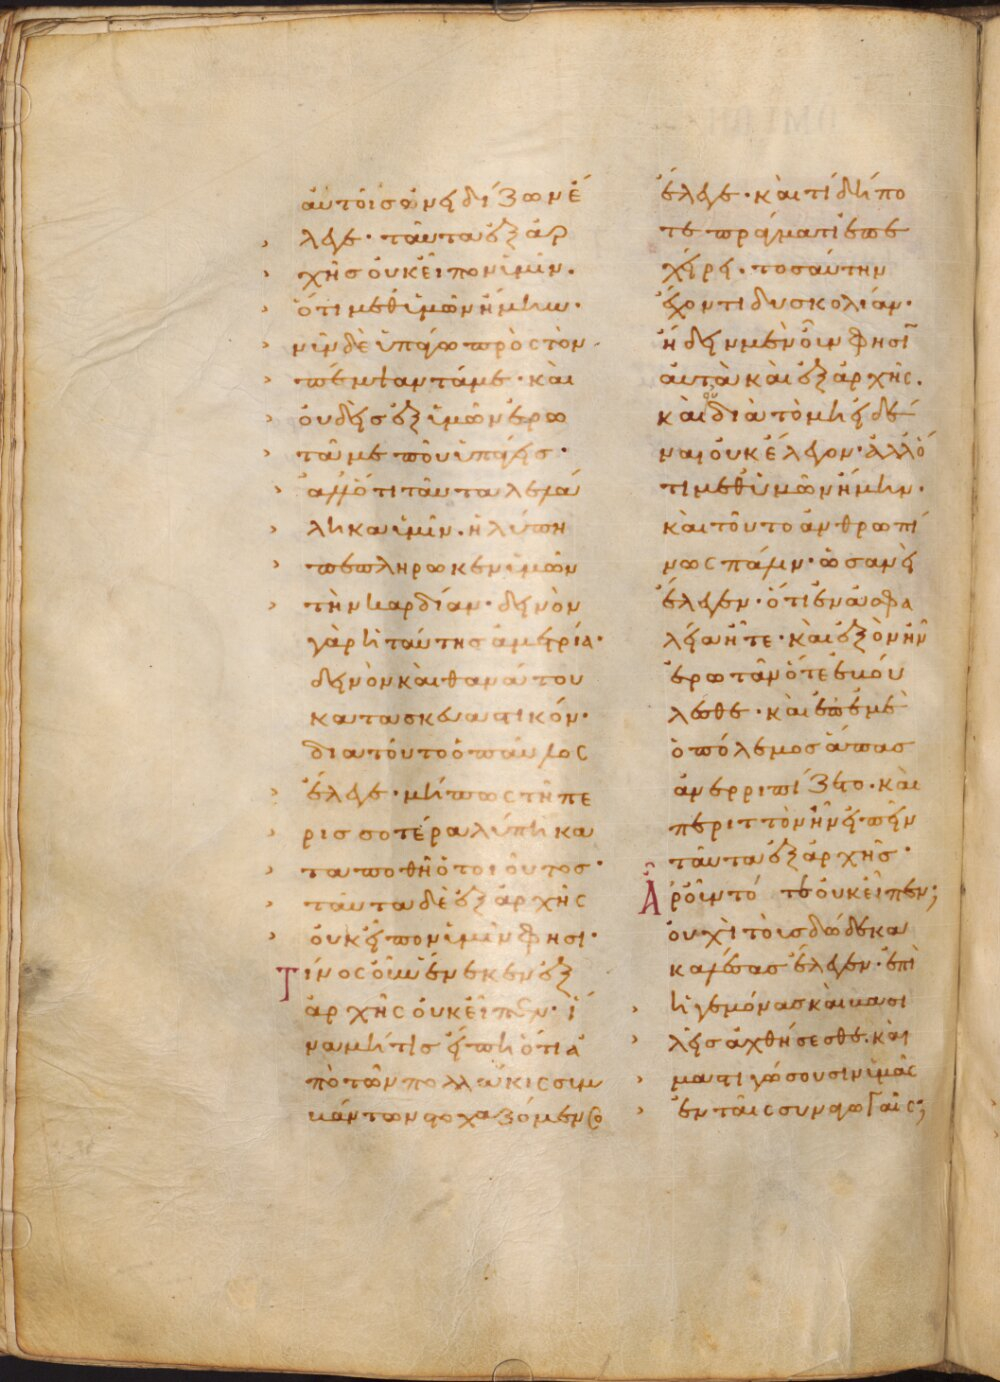 αὐτοῖς ὀνειδίζων ἔ
λεγε· ταῦτα ἐξ ἀρ
χῆς οὐκ εἶπον ὑμῖν·
ὅτι μεθ ὑμῶν ἤμην·
νῦν δὲ ὑπάγω πρὸς τὸν
πέμψαντά με· καὶ
οὐδεὶς ἐξ ὑμῶν ἐρω
τᾶ με ποῦ ὑπάγεις·
ἀλλ ὅτι ταῦτα λελά
ληκα ὑμῖν· ἡ λύπη
πεπλήρωκεν ὑμῶν
τὴν καρδίαν· δεινὸν
γὰρ ἡ ταύτης ἀμετρία·
δεινὸν καὶ θανάτου
κατασκευαστικόν·
διατοῦτο ὁ παῦλος
ἔλεγε· μήπως τῆ πε
ρισσοτέρα λύπη κα
ταποθῆ ὁ τοιοῦτος·
ταῦτα δὲ ἐξ ἀρχῆς
οὐκ εἶπον ὑμῖν φησι·
Τίνος οὖν ἕνεκεν ἐξ
ἀρχῆς οὐκ εἶπεν· ἵ
να μή τις εἴπη ὅτι ἀ
πὸ τῶν πολλάκις συμ
βάντων στοχαζόμενος
ἔλεγε· καὶ τί δήπο
τε πράγματι ἐπε
χείρει· τοσαύτην
ἔχοντι δυσκολίαν·
ἤδειν μὲν οὖν φησὶ
αὐτὰ καὶ ἐξ ἀρχῆς·
καὶ οὐ διὰ τὸ μὴ εἰδέ
ναι οὐκ ἔλεγον· ἀλλ ὅ
τι μεθ ὑμῶν ἤμην·
καὶ τοῦτο ἀνθρωπί
νως πάλιν· ὡσανεὶ
ἔλεγεν· ὅτι ἐν ἀσφα
λεία ἦτε· καὶ ἐξὸν ἦν
ἐρωτᾶν ὅτε ἐβού
λεσθε· καὶ ἐπ ἐμὲ
ὁ πόλεμος ἅπας
ἀνερριπίζετο· καὶ
περιττὸν ἦν εἰπεῖν
ταῦτα ἐξ ἀρχῆς·
Ἆρ οὖν τοῦτο οὐκ εἶπεν;
οὐχὶ τοὺς δώδεκα
καλέσας ἔλεγεν· ἐπὶ
ἡγεμόνας καὶ βασι
λεῖς ἀχθήσεσθε· καὶ
μαστιγώσουσιν ὑμᾶς
ἐν ταῖς συναγωγαῖς;